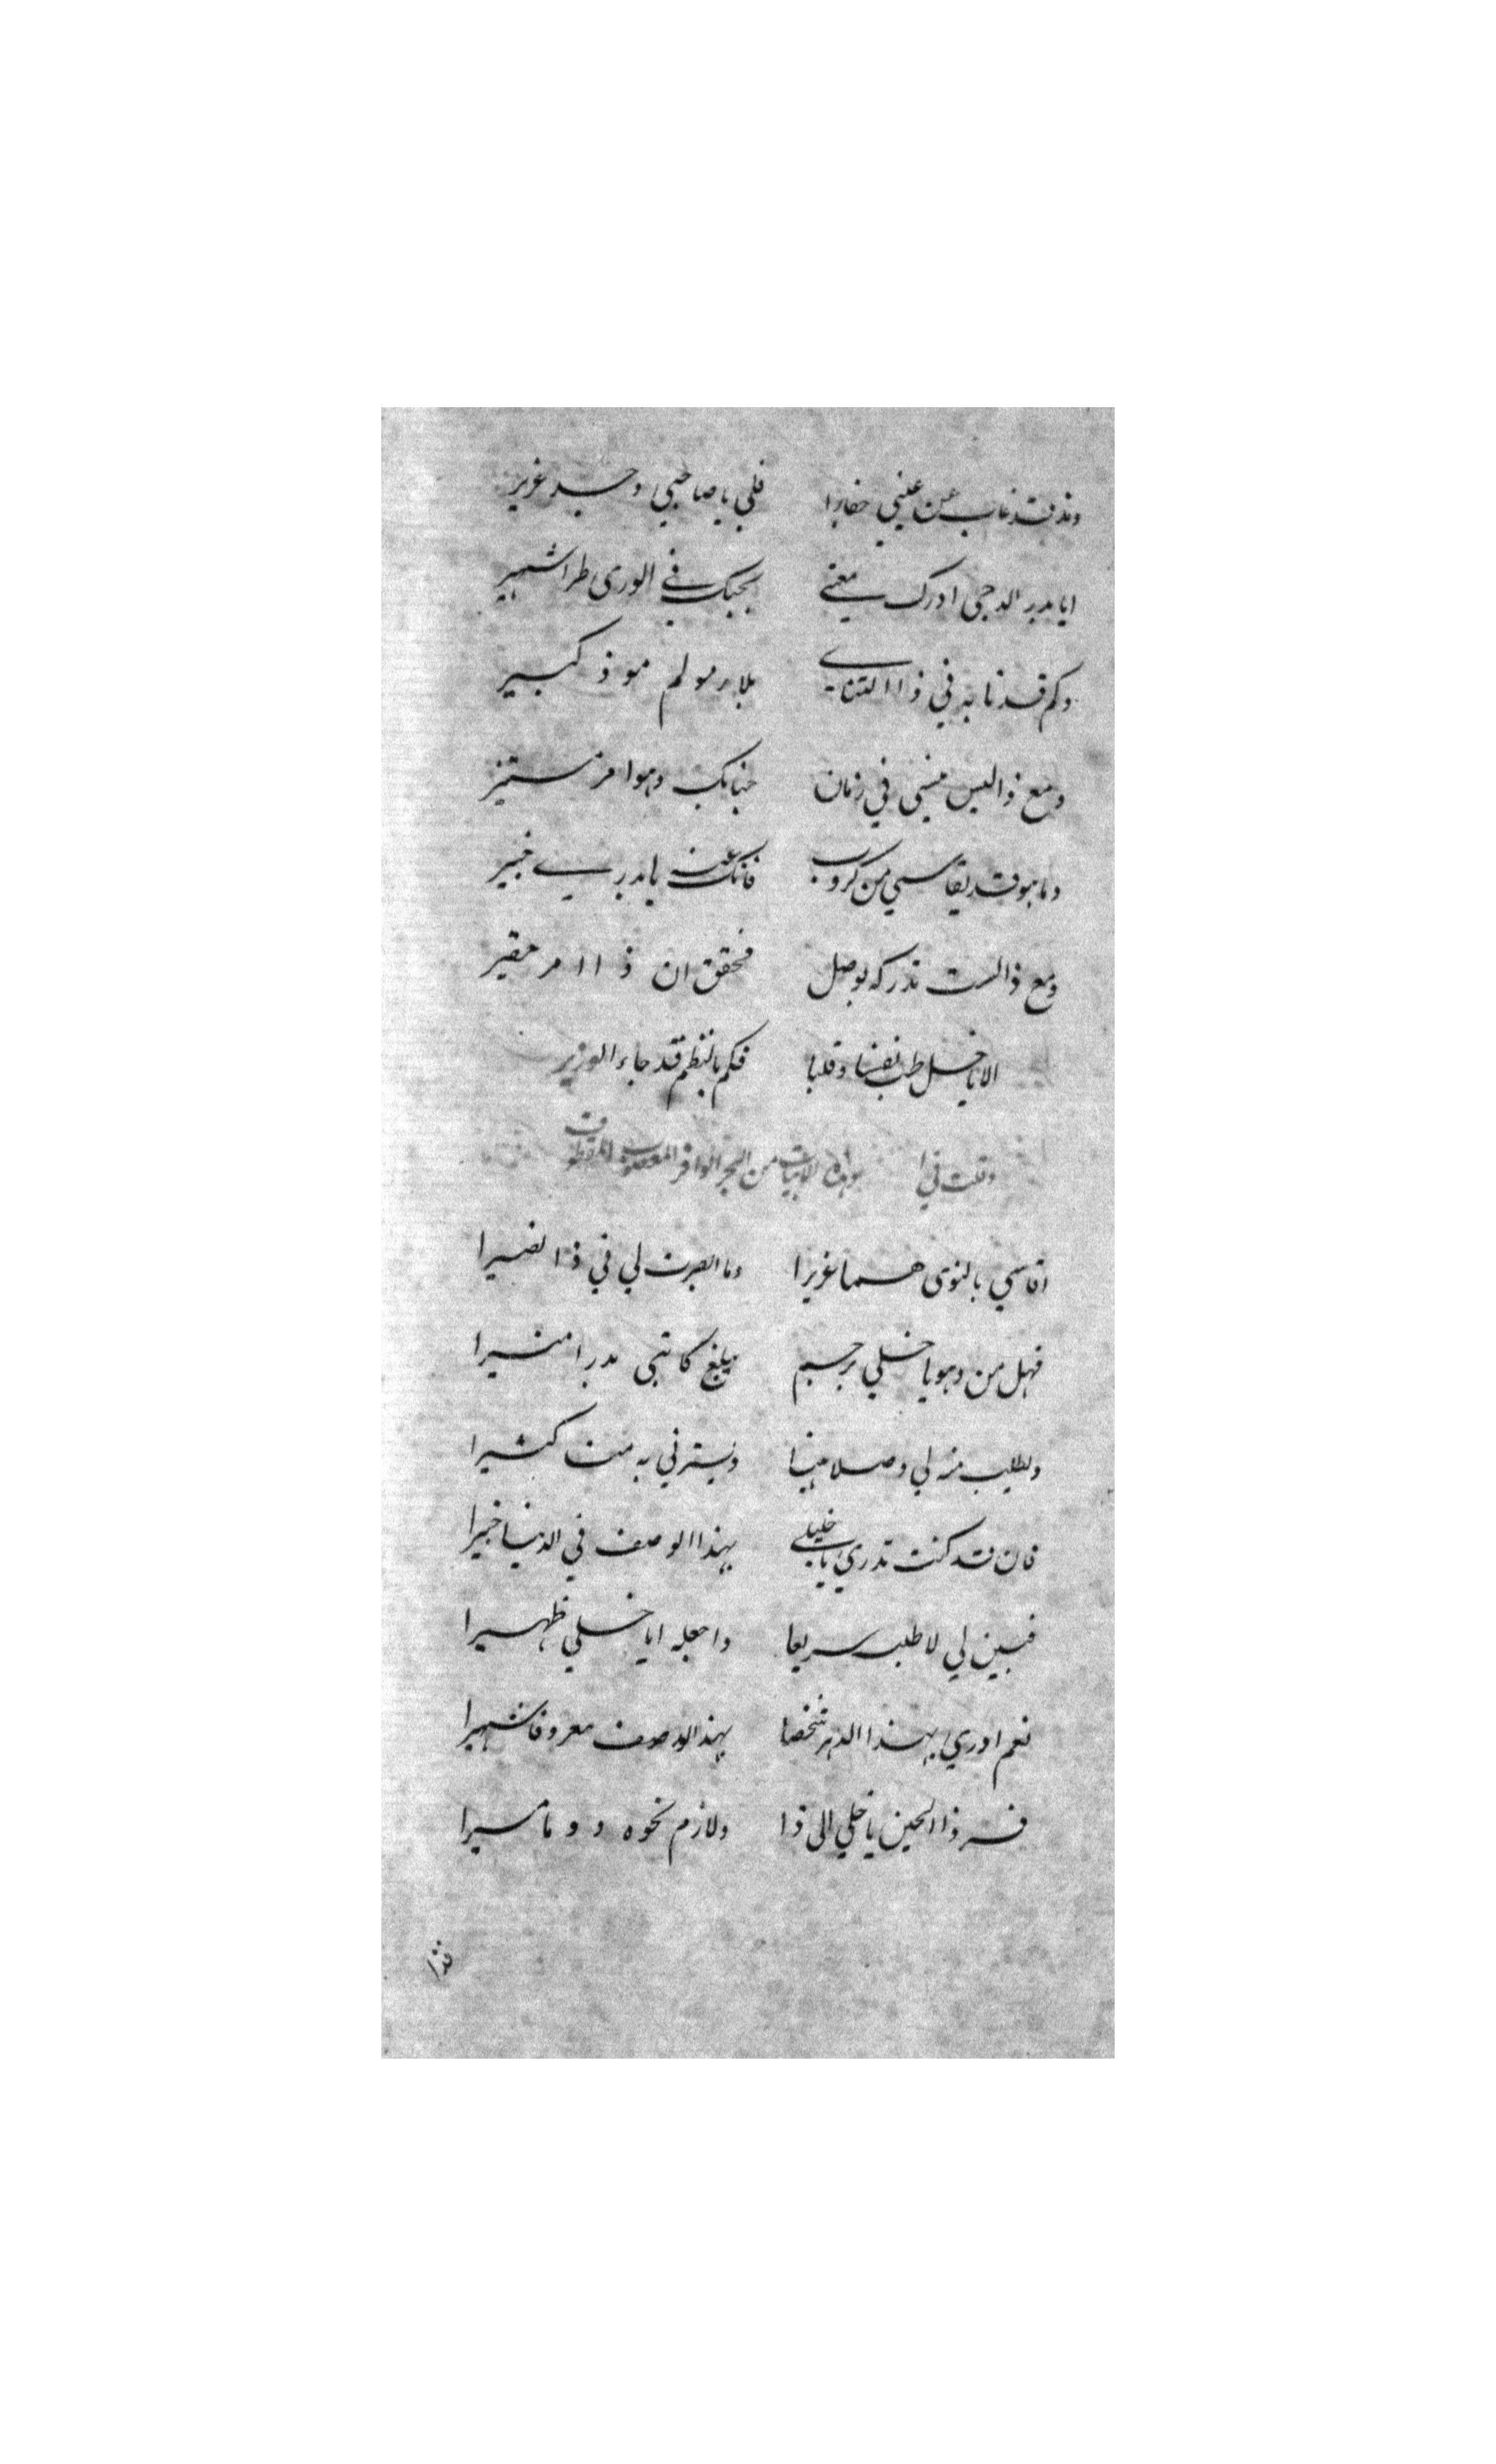 ومذ قد غاب عن عيني حفارا فلي يا صاحبي وجد غزير
ايا بدر الدجى ادرك معنى بحبك في الورى طرا شهير
وكم قد نابه في ذا التنائي بلاء مولم موذ كبير
ومع ذا ليس ينسى في زمان جنابك وهو امر مستنير
وما هو قد يقاسي من كروب فانك عنه يا بدري خبير
ومع ذا لست تدركه بوصل فحقق ان ذا امر حقير
الا يا خل طب نفسا وقلبا فكم بالنظم قد جاء الوزير
وقلت في هذه الابيات من البحر الوافر المعصوب المقطوف
اقاسي بالنوى هما غزيرا وما ابصرت لي في ذا نصيرا
فهل من وهو يا خلي رحيم يبلغ كاتبي بدرا منيرا
ويطلب منه لي وصلا هينا ويسترني به مننا كثيرا
فان قد كنت تدري يا خليلي بهذا الوصف في الدنيا خبيرا
فبين لي لاطلبه سريعا واجعله ايا خلي ظهيرا
نعم ادري بهذا الدهر شخصا بهذا الوصف معروفا شهيرا
فسر ذا الحين يا خلي الى ذا ولازم نحوه دوما مسيرا